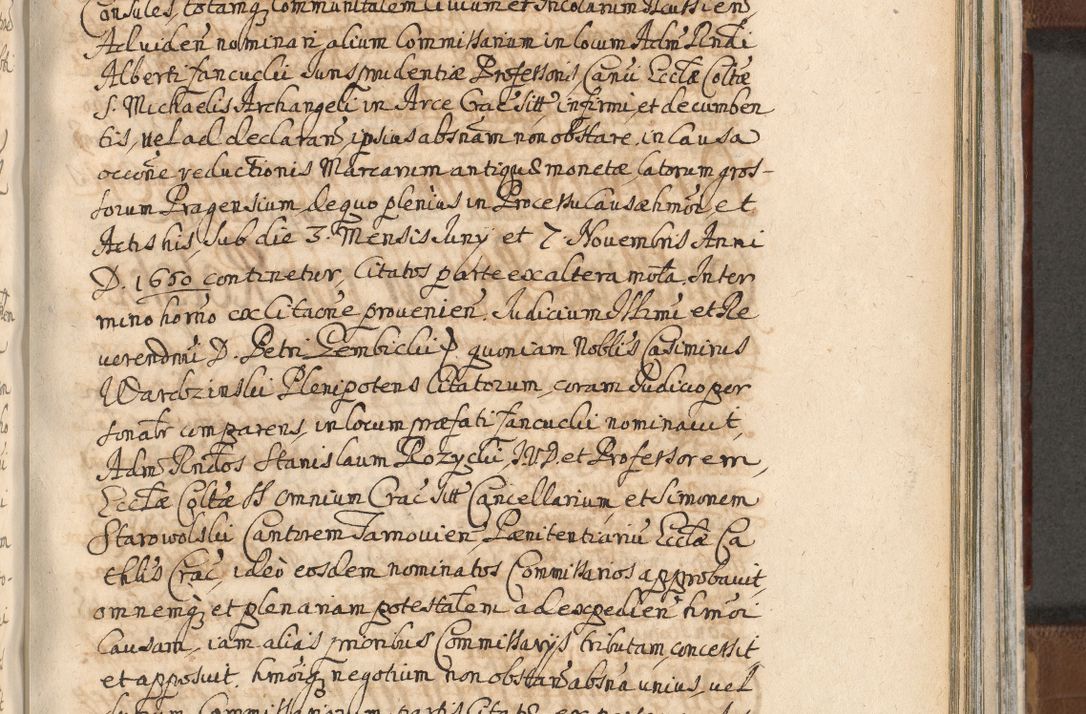 Consules, totamq; Communitatem Civium et Incolarum Ilcussien̄
Ad viden̄ nominari alium Commissarium in locum Adm̄ Rndi
Alberti Jancuclii Jurisprudentiæ Professoris Canci Eccl̄æ Colt̄æ
S. Michaelis Archangeli in Arce Crac̄ sitt̄ infirmi et decumben
tis, vel ad declaran̄ ipsius absn̄am non obstare in causa
occon̄e reductionis Marcarum antiquæ monetæ, latorum gros-
sorum Pragensium, de quo plenius in Processu causæ hmōi, et
Actis his, sub die 3. Mensis Juny et 7. Novembris Anni
D. 1650 continetur, Citatos parte ex altera mot̄a. In ter
mino horno ex Citaōne provenien̄. Judicium Illmi et Re
verendmi D. Petri Gembiclii P. quoniam Noblis Casimirus
Wardozinslii Plenipotens Citatorum, coram Judicio per
sonalr comparens, in locum præfati Jancuclii nominavit,
Adm̄ Rndos Stanislaum Rozyclii, J.U.D. et Professorem,
Eccl̄æ Colt̄æ SS omnium Crac̄ sitt̄ Cancellarium, et Simonem
Starowolslii Cantorem Tarnovien̄, Pænitentiariu Eccl̄æ Ca
thlis Crac̄, ideò eosdem nominatos Commissarios approbavit,
omnemq; et plenariam potestatem ad expedien̄ hmōi
Causam, iam alias prioribus Commissarys tributam, concessit
et apposuit. hmōiq; negotium non obstan̄ absn̄a unius, vel